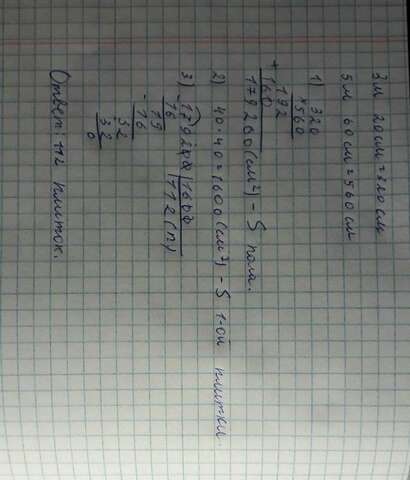 3 м 20 см = 320 см
5 м 60 см = 560 см
1) 320
× 560
192
+ 160
179200 (см²) - S пола.
2) 40 · 40 = 1600 (см²) - S 1-ой плитки.
3) 179200 | 1600
- 16 112 (п)
19
- 16
32
32
0
Ответ: 112 плиток.